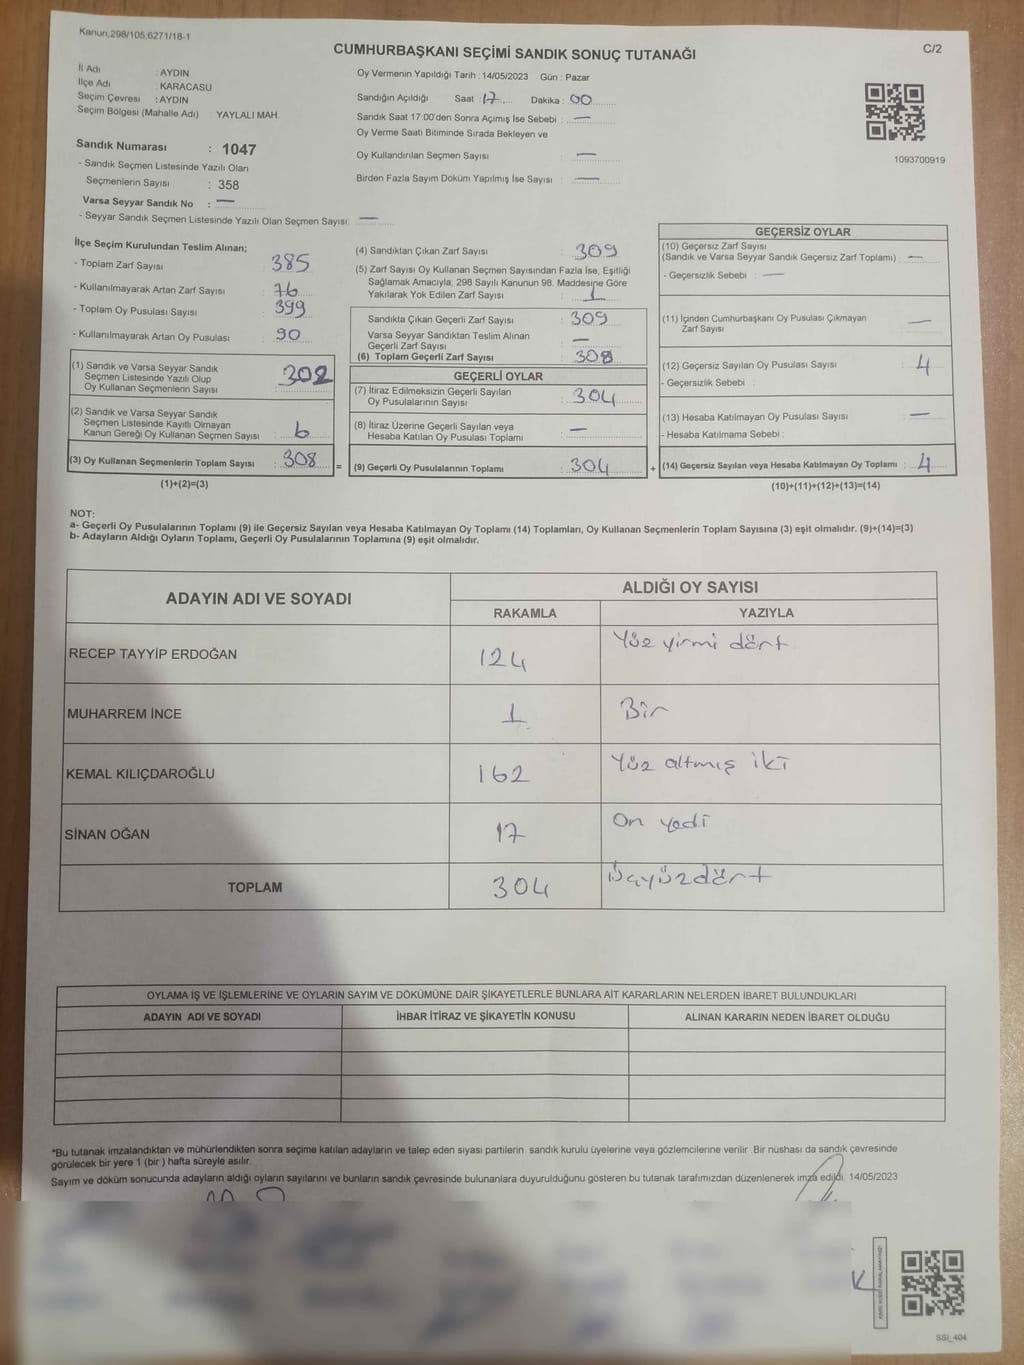 Kanun,298/105,6271/18-1
CUMHURBAŞKANI SEÇİMİ SANDIK SONUÇ TUTANAĞI
C/2
İl Adı : AYDIN
İlçe Adı : KARACASU
Seçim Çevresi : AYDIN
Seçim Bölgesi (Mahalle Adı) : YAYLALI MAH.
Sandık Numarası : 1047
- Sandık Seçmen Listesinde Yazılı Olan
Seçmenlerin Sayısı : 358
Varsa Seyyar Sandık No : —
- Seyyar Sandık Seçmen Listesinde Yazılı Olan Seçmen Sayısı: —
Oy Vermenin Yapıldığı Tarih : 14/05/2023 Gün : Pazar
Sandığın Açıldığı Saat : 17 Dakika : 00
Sandık Saat 17:00'den Sonra Açımış İse Sebebi : —
Oy Verme Saati Bitiminde Sırada Bekleyen ve
Oy Kullandırılan Seçmen Sayısı : —
Birden Fazla Sayım Döküm Yapılmış İse Sayısı : —
1093700919
İlçe Seçim Kurulundan Teslim Alınan;
- Toplam Zarf Sayısı : 385
- Kullanılmayarak Artan Zarf Sayısı : 76
- Toplam Oy Pusulası Sayısı : 399
- Kullanılmayarak Artan Oy Pusulası : 90
(1) Sandık ve Varsa Seyyar Sandık
Seçmen Listesinde Yazılı Olup
Oy Kullanan Seçmenlerin Sayısı : 302
(2) Sandık ve Varsa Seyyar Sandık
Seçmen Listesinde Kayıtlı Olmayan
Kanun Gereği Oy Kullanan Seçmen Sayısı : 6
(3) Oy Kullanan Seçmenlerin Toplam Sayısı : 308
(1)+(2)=(3)
(4) Sandıktan Çıkan Zarf Sayısı : 309
(5) Zarf Sayısı Oy Kullanan Seçmen Sayısından Fazla İse, Eşitliği
Sağlamak Amacıyla, 298 Sayılı Kanunun 98. Maddesine Göre
Yakılarak Yok Edilen Zarf Sayısı : 1
Sandıkta Çıkan Geçerli Zarf Sayısı : 309
Varsa Seyyar Sandıktan Teslim Alınan
Geçerli Zarf Sayısı : —
(6) Toplam Geçerli Zarf Sayısı : 308
GEÇERLİ OYLAR
(7) İtiraz Edilmeksizin Geçerli Sayılan
Oy Pusulalarının Sayısı : 304
(8) İtiraz Üzerine Geçerli Sayılan veya
Hesaba Katılan Oy Pusulası Toplamı : —
= (9) Geçerli Oy Pusulalarının Toplamı : 304
GEÇERSİZ OYLAR
(10) Geçersiz Zarf Sayısı
(Sandık ve Varsa Seyyar Sandık Geçersiz Zarf Toplamı) : —
- Geçersizlik Sebebi : —
(11) İçinden Cumhurbaşkanı Oy Pusulası Çıkmayan
Zarf Sayısı : —
(12) Geçersiz Sayılan Oy Pusulası Sayısı : 4
- Geçersizlik Sebebi :
(13) Hesaba Katılmayan Oy Pusulası Sayısı : —
- Hesaba Katılmama Sebebi :
+ (14) Geçersiz Sayılan veya Hesaba Katılmayan Oy Toplamı : 4
(10)+(11)+(12)+(13)=(14)
NOT:
a- Geçerli Oy Pusulalarının Toplamı (9) ile Geçersiz Sayılan veya Hesaba Katılmayan Oy Toplamı (14) Toplamları, Oy Kullanan Seçmenlerin Toplam Sayısına (3) eşit olmalıdır. (9)+(14)=(3)
b- Adayların Aldığı Oyların Toplamı, Geçerli Oy Pusulalarının Toplamına (9) eşit olmalıdır.
ADAYIN ADI VE SOYADI
ALDIĞI OY SAYISI
RAKAMLA YAZIYLA
RECEP TAYYİP ERDOĞAN 124 Yüz yirmi dört
MUHARREM İNCE 1 Bir
KEMAL KILIÇDAROĞLU 162 Yüz altmış iki
SİNAN OĞAN 17 On yedi
TOPLAM 304 Üçyüzdört
OYLAMA İŞ VE İŞLEMLERİNE VE OYLARIN SAYIM VE DÖKÜMÜNE DAİR ŞİKAYETLERLE BUNLARA AİT KARARLARIN NELERDEN İBARET BULUNDUKLARI
ADAYIN ADI VE SOYADI İHBAR İTİRAZ VE ŞİKAYETİN KONUSU ALINAN KARARIN NEDEN İBARET OLDUĞU
*Bu tutanak imzalandıktan ve mühürlendikten sonra seçime katılan adayların ve talep eden siyasi partilerin sandık kurulu üyelerine veya gözlemcilerine verilir. Bir nüshası da sandık çevresinde
görülecek bir yere 1 (bir ) hafta süreyle asılır.
Sayım ve döküm sonucunda adayların aldığı oyların sayılarını ve bunların sandık çevresinde bulunanlara duyurulduğunu gösteren bu tutanak tarafımızdan düzenlenerek imza edildi. 14/05/2023
SSI_404